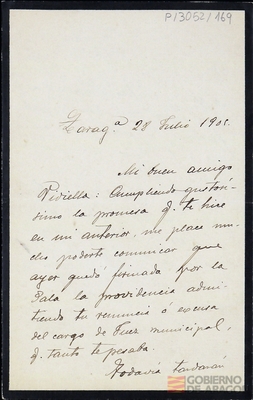 P/3052/169
Zarag.ª 28 Julio 190
Mi buen amigo
Pidiella: Cumpliendo gustosí-
simo la promesa q. te hice
en mi anterior, me place mu-
cho poderte comunicar que
ayer quedó firmada por la
Sala la providencia admi-
tiendo tu renuncia ó excusa
del cargo de Juez municipal,
q. tanto te pesaba.
Todavía tardarán
GOBIERNO
DE ARAGON